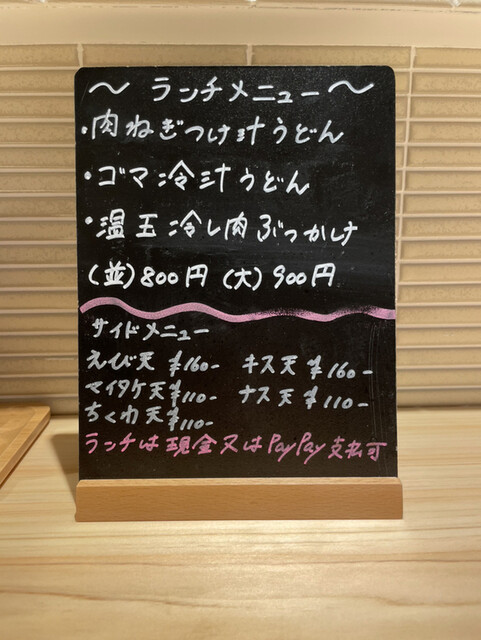 〜 ランチメニュー 〜
・肉ねぎつけ汁うどん
・ゴマ冷汁うどん
・温玉冷し肉ぶっかけ
(並)800円 (大)900円
サイドメニュー
えび天 ¥160- キス天 ¥160-
マイタケ天 ¥110- ナス天 ¥110-
ちくわ天 ¥110-
ランチは現金又はPayPay支払可